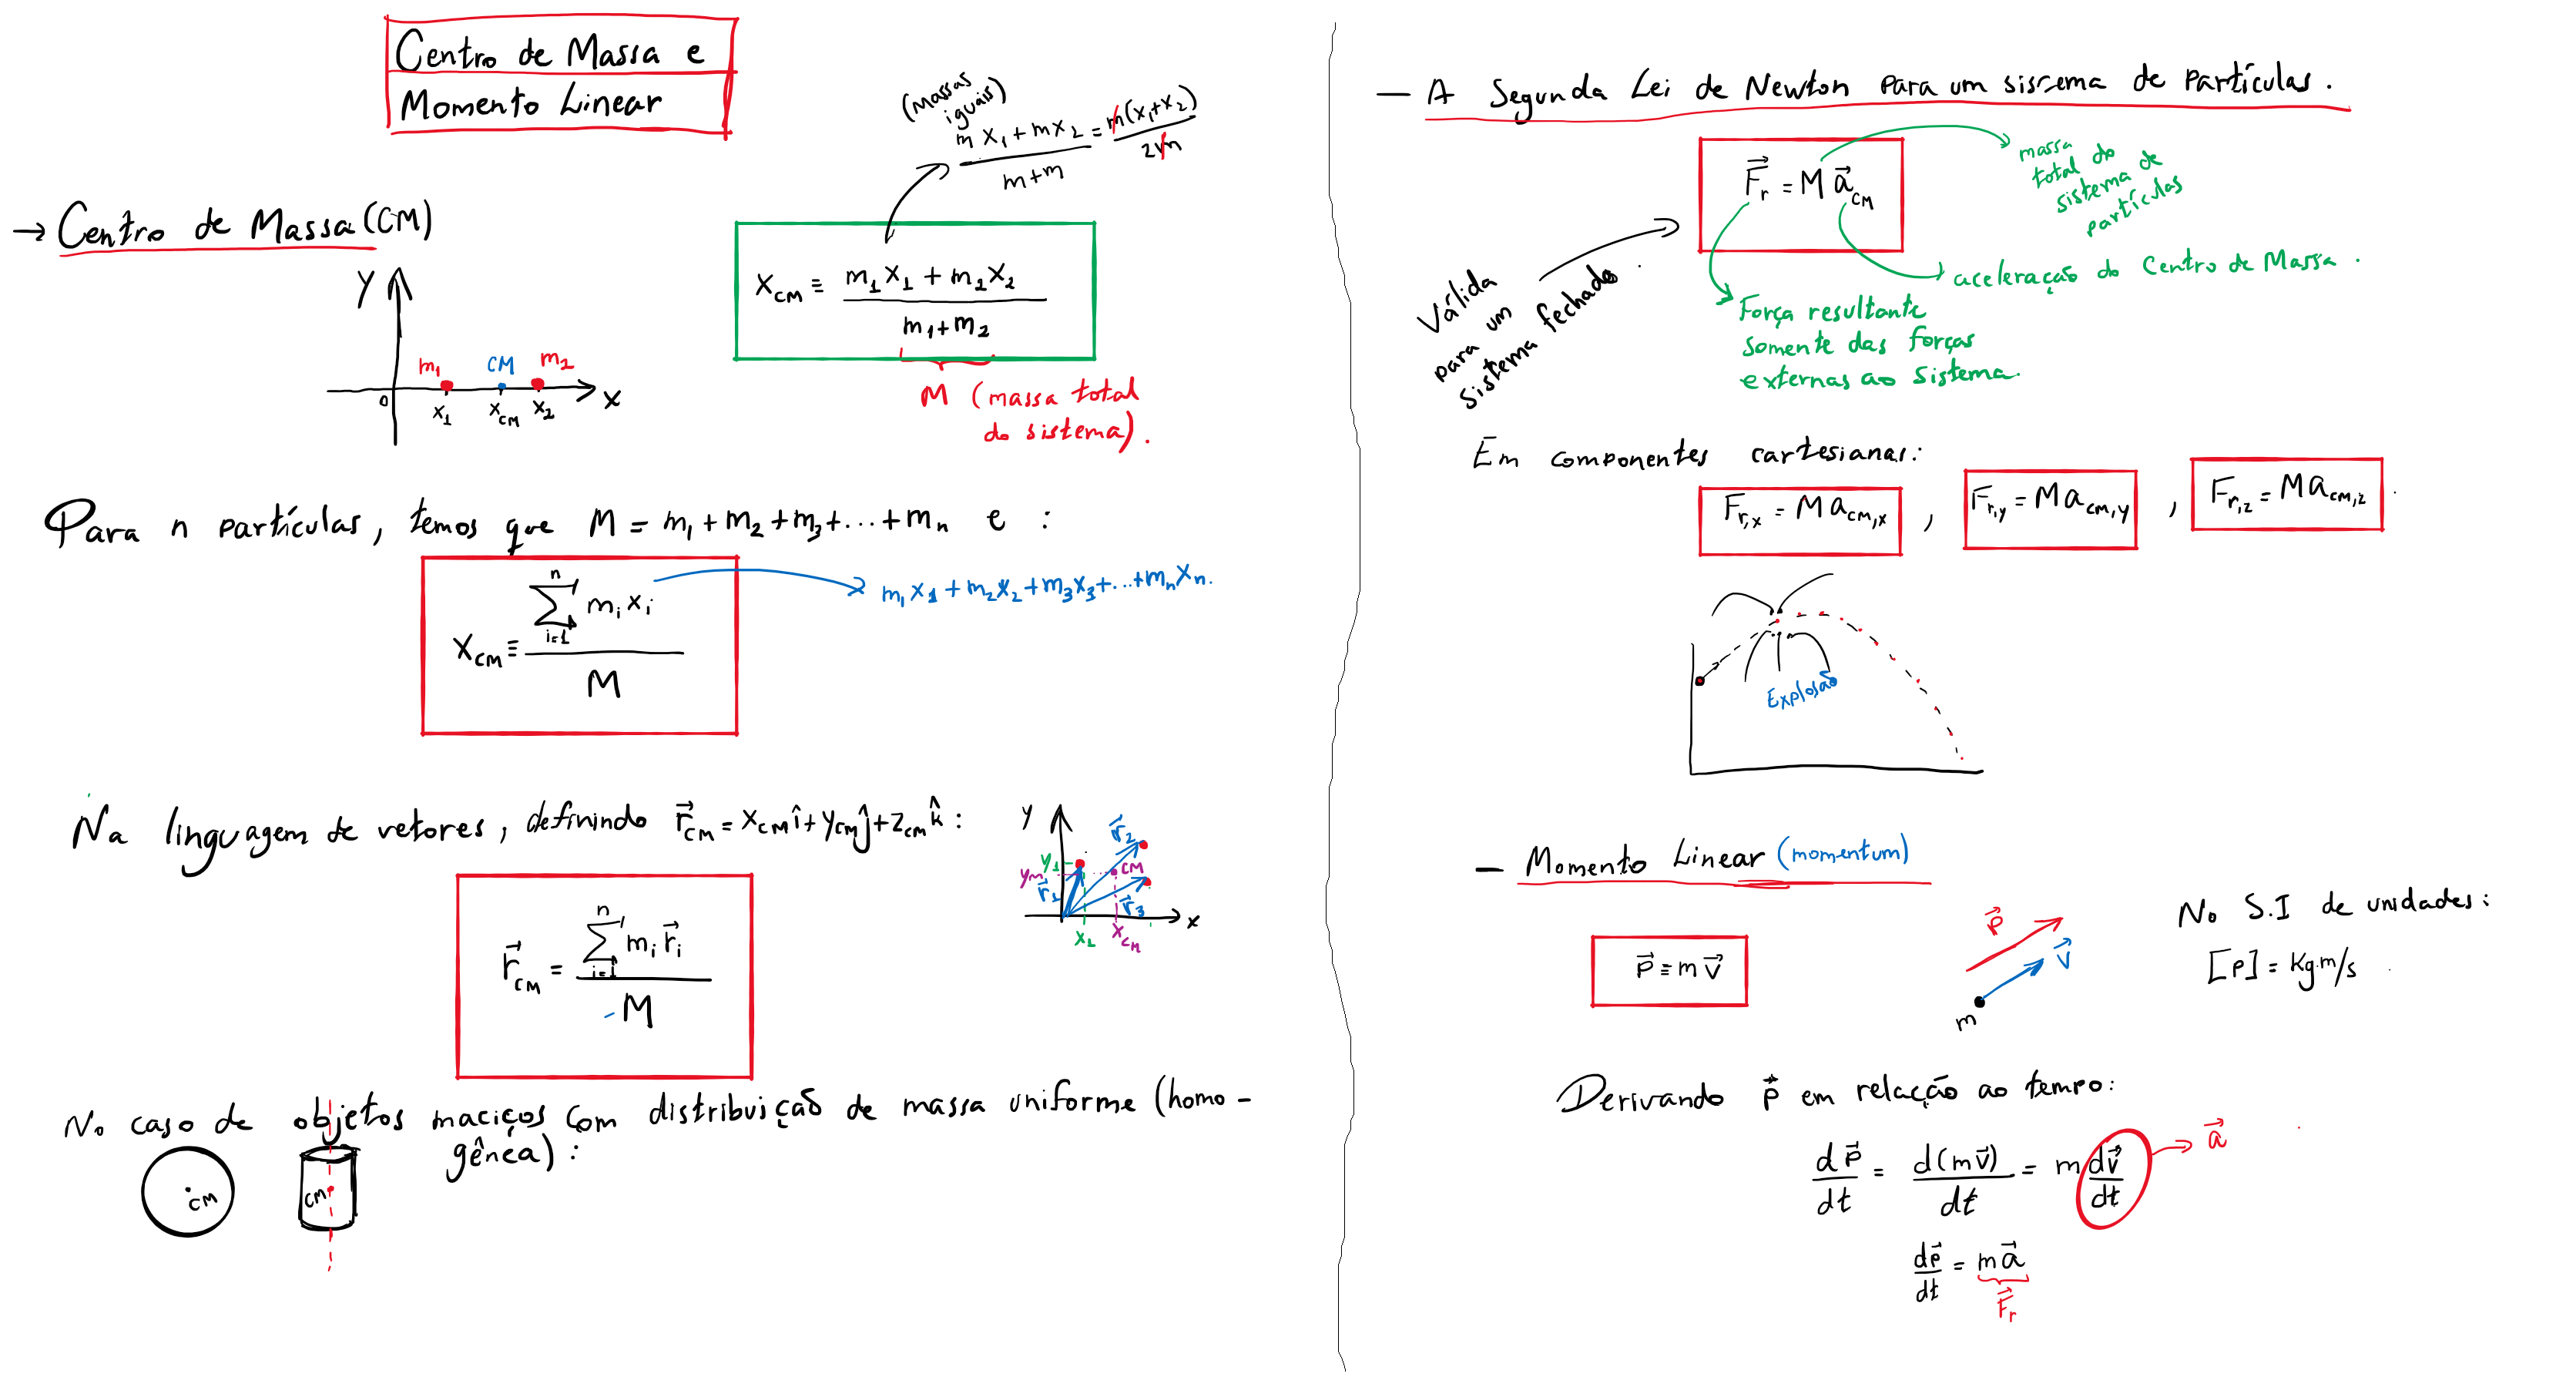 Centro de Massa e
Momento Linear
→ Centro de Massa (CM)
(Massas
iguais)
m x₁ + m x₂ / m + m = m(x₁+x₂) / 2m
X_CM ≡ m₁X₁ + m₂X₂ / m₁ + m₂
M (massa total
do sistema).
Y
m₁ CM m₂
0 x₁ x_CM x₂ X
Para n partículas, temos que M = m₁ + m₂ + m₃ + ... + mₙ e :
X_CM ≡ Σ_{i=1}^{n} mᵢ xᵢ / M
m₁X₁ + m₂X₂ + m₃X₃ + ... + mₙXₙ.
Na linguagem de vetores, definindo r⃗_CM = x_CM î + y_CM ĵ + z_CM k̂ :
r⃗_CM = Σ_{i=1}^{n} mᵢ r⃗ᵢ / M
Y
r⃗₂
y₁
y_m CM
r⃗₁ r⃗₃
x₁ x_CM X
No caso de objetos maciços com distribuição de massa uniforme (homo-
gênea) :
CM
CM
— A Segunda Lei de Newton para um sistema de partículas.
F⃗_r = M a⃗_CM
massa
total do
sistema de
partículas
aceleração do Centro de Massa.
Força resultante
somente das forças
externas ao sistema.
Válida
para um
sistema fechado.
Em componentes cartesianas:
F_{r,x} = M a_{CM,x} , F_{r,y} = M a_{CM,y} , F_{r,z} = M a_{CM,z} .
Explosão
— Momento Linear (momentum)
P⃗ ≡ m v⃗
P⃗
v⃗
m
No S.I de unidades:
[P] = Kg.m/s .
Derivando P⃗ em relação ao tempo:
dP⃗/dt = d(m v⃗)/dt = m dv⃗/dt → a⃗
dP⃗/dt = m a⃗
F⃗_r